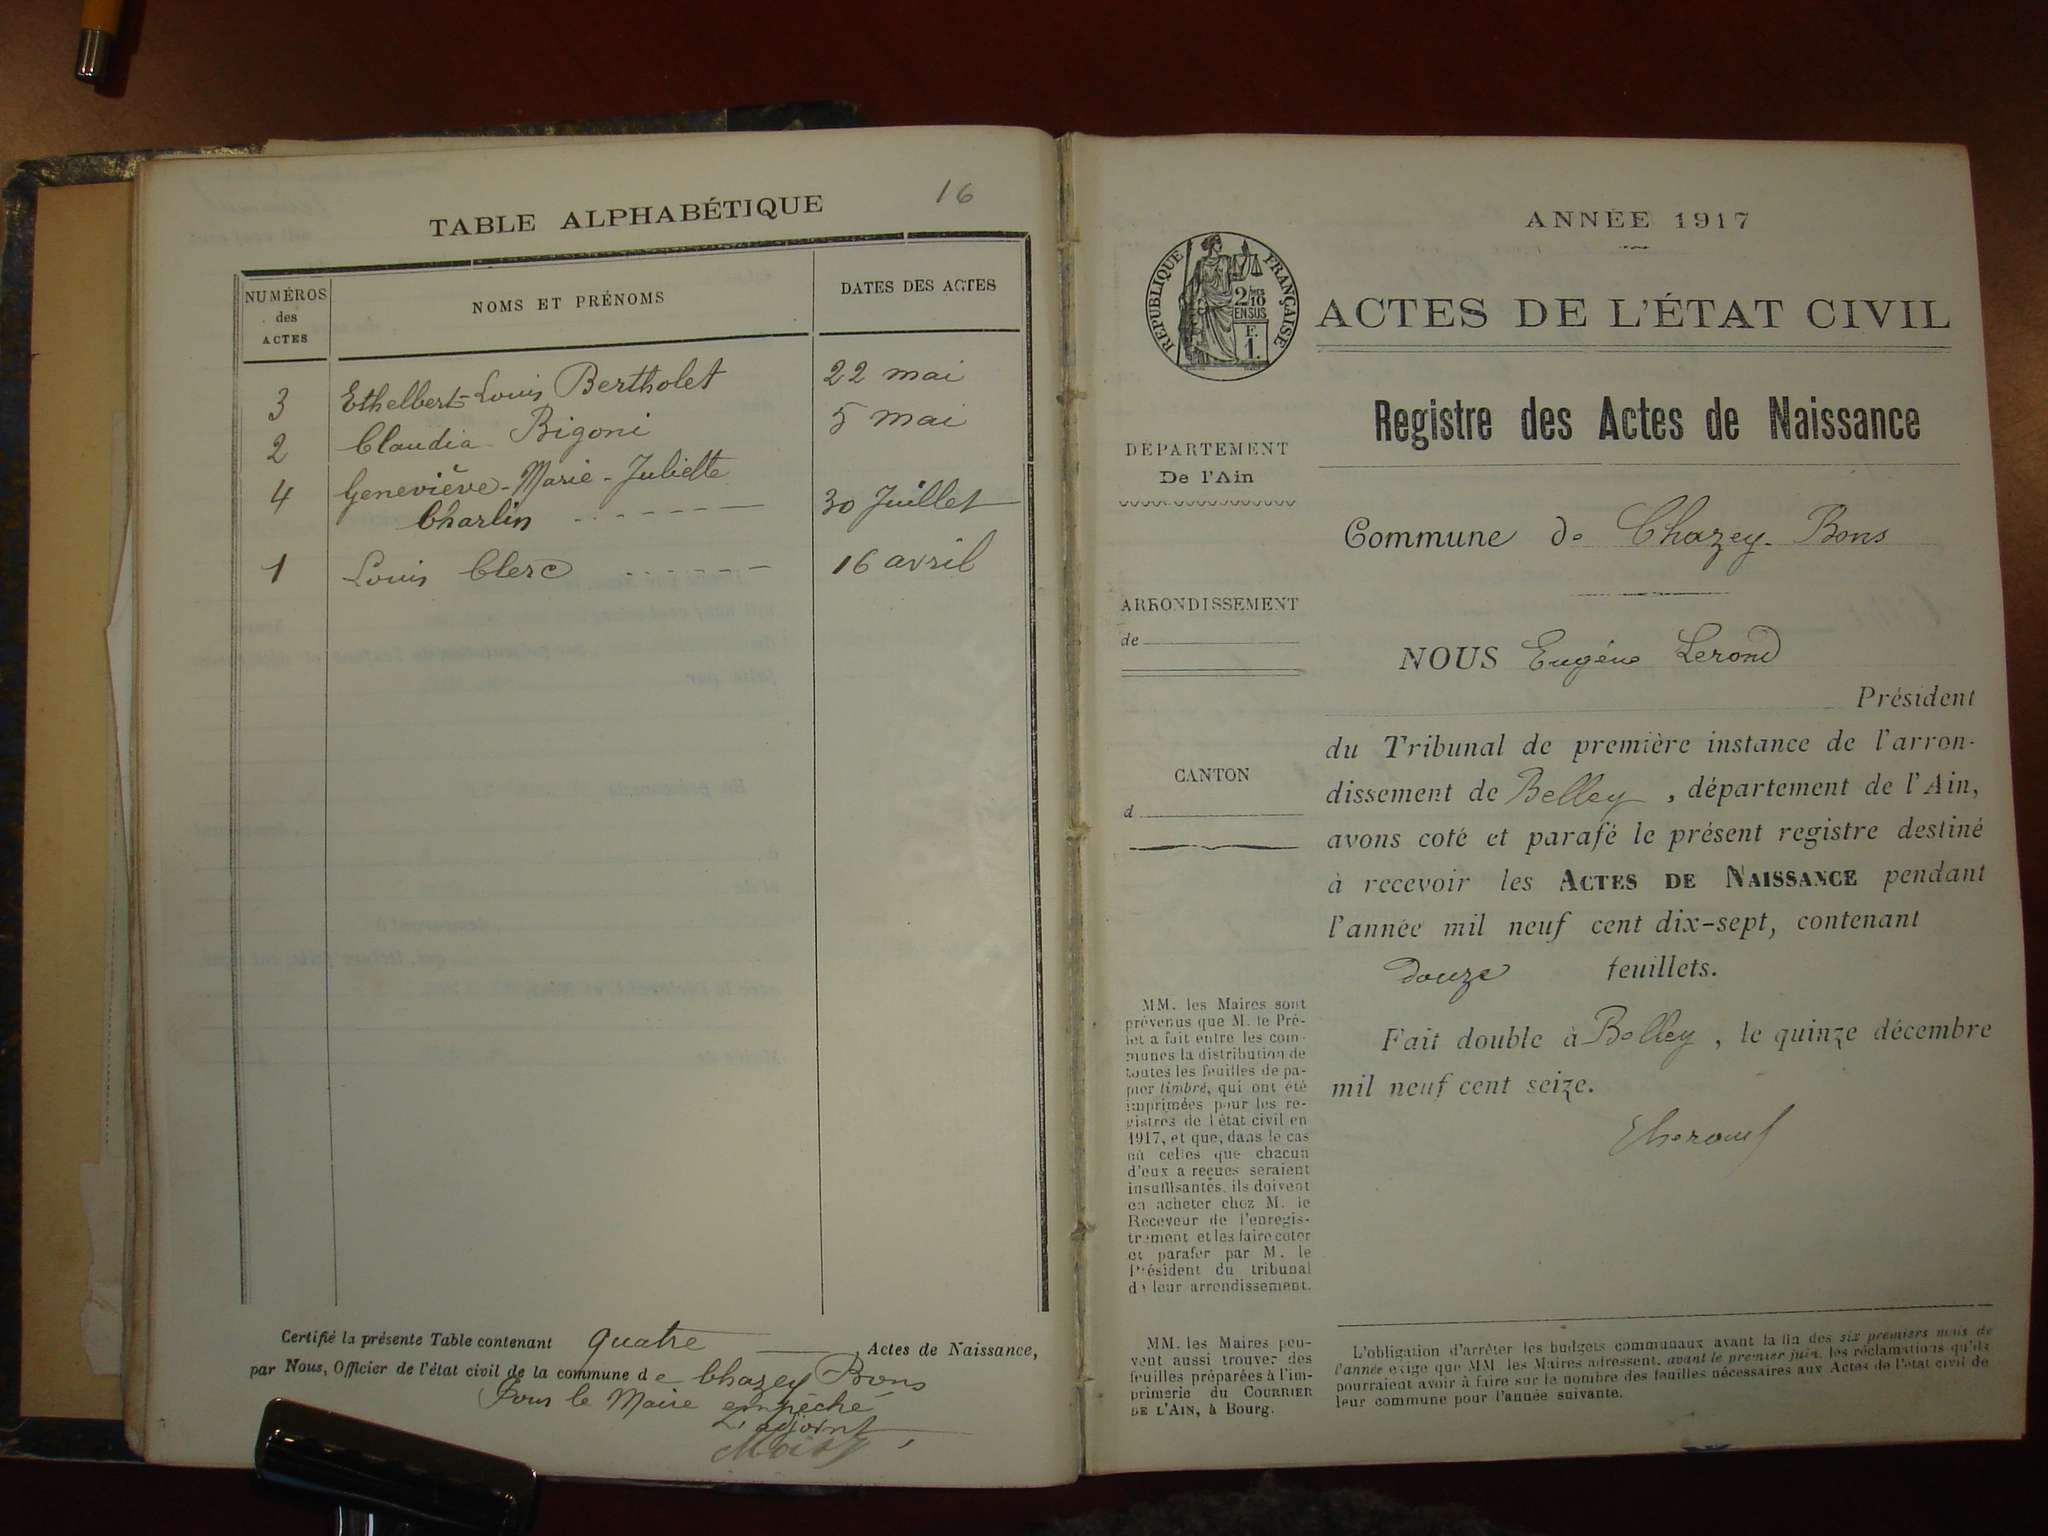 TABLE ALPHABÉTIQUE
16
NUMÉROS
des
ACTES
NOMS ET PRÉNOMS
DATES DES ACTES
3 Ethelbert-Louis Bertholet 22 mai
2 Claudia Bigoni 5 mai
4 Geneviève-Marie-Juliette
Charlin 30 Juillet
1 Louis Clerc 16 avril
Certifié la présente Table contenant quatre Actes de Naissance,
par Nous, Officier de l'état civil de la commune de Chazey Bons
Pour le Maire empêché
L'adjoint
ANNÉE 1917
RÉPUBLIQUE FRANÇAISE
2/10
EN SUS
F.
1.
ACTES DE L'ÉTAT CIVIL
Registre des Actes de Naissance
DÉPARTEMENT
De l'Ain
Commune de Chazey-Bons
ARRONDISSEMENT
de
NOUS Eugène Lerond
Président
du Tribunal de première instance de l'arron-
dissement de Belley, département de l'Ain,
CANTON
d
avons coté et parafé le présent registre destiné
à recevoir les ACTES DE NAISSANCE pendant
l'année mil neuf cent dix-sept, contenant
douze feuillets.
Fait double à Belley, le quinze décembre
mil neuf cent seize.
MM. les Maires sont
prévenus que M. le Pré-
fet a fait entre les com-
munes la distribution de
toutes les feuilles de pa-
pier timbré, qui ont été
imprimées pour les re-
gistres de l'état civil en
1917, et que, dans le cas
où celles que chacun
d'eux a reçues seraient
insuffisantes, ils doivent
en acheter chez M. le
Receveur de l'enregis-
trement et les faire coter
et parafer par M. le
Président du tribunal
de leur arrondissement.
MM. les Maires peu-
vent aussi trouver des
feuilles préparées à l'im-
primerie du COURRIER
DE L'AIN, à Bourg.
L'obligation d'arrêter les budgets communaux avant la fin des six premiers mois de
l'année exige que MM. les Maires adressent, avant le premier juin, les réclamations qu'ils
pourraient avoir à faire sur le nombre des feuilles nécessaires aux Actes de l'état civil de
leur commune pour l'année suivante.